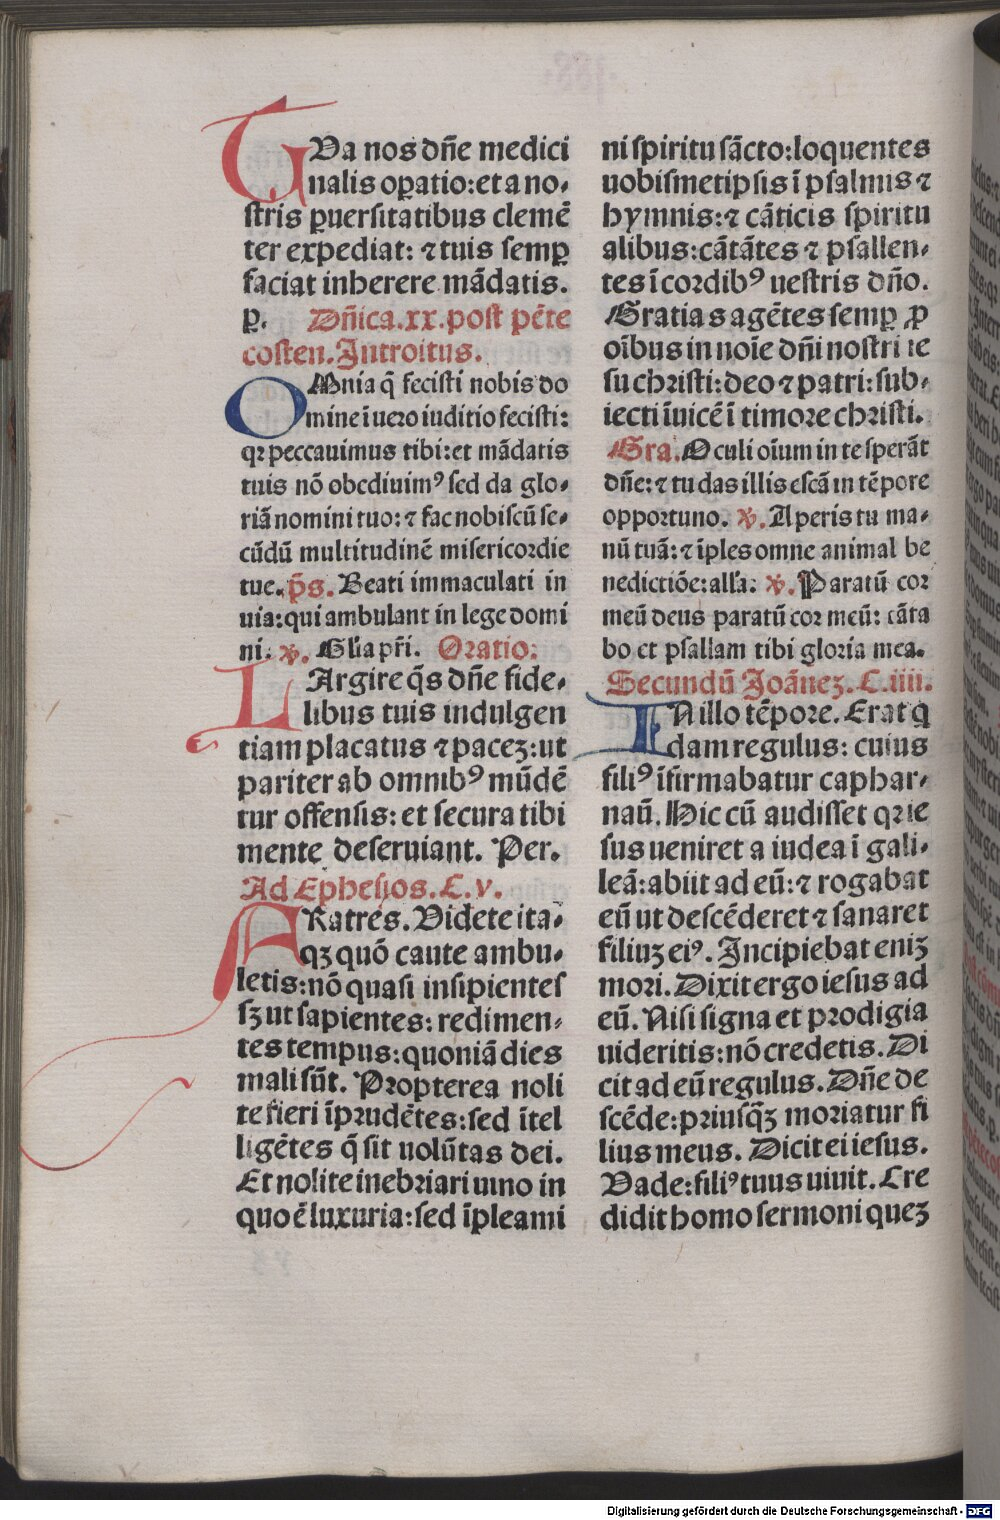 TVa nos dn̄e medici
nalis oꝑatio:et a no-
stris ꝑuersitatibus clemē
ter expediat: ⁊ tuis semꝑ
faciat inherere mādatis.
ꝑ. Dn̄ica.xx.post pēte
costen.Introitus.
OMnia q̄ fecisti nobis do
mine ī uero iuditio fecisti:
qꝛ peccauimus tibi:et mādatis
tuis nō obediuimꝰ sed da glo-
riā nomini tuo:⁊ fac nobiscū se-
cūdū multitudinē misericordie
tue. p̄s. Beati immaculati in
uia:qui ambulant in lege domi
ni. ℣. Gl'ia pr̄i. Oratio:
LArgire q̄s dn̄e fide-
libus tuis indulgen
tiam placatus ⁊ pacez:ut
pariter ab omnibꝰ mūdē
tur offensis: et secura tibi
mente deseruiant. Per.
Ad Ephesios.C.v.
FRatres. Videte ita-
qꝫ quō caute ambu-
letis:nō quasi insipientes
sꝫ ut sapientes: redimen-
tes tempus:quoniā dies
mali sūt. Propterea noli
te fieri īprudētes:sed ītel
ligētes q̄ sit uolūtas dei.
Et nolite inebriari uino in
quo ē luxuria:sed īpleami
ni spiritu sācto:loquentes
uobismetipsis ī psalmis ⁊
hymnis:⁊ cāticis spiritu
alibus:cātātes ⁊ psallen-
tes ī cordibꝰ uestris dn̄o.
Gratias agētes semꝑ ꝓ
oībus in noīe dn̄i nostri ie
su christi:deo ⁊ patri:sub-
iecti īuicē ī timore christi.
Gra. Oculi oīum in te sperāt
dn̄e:⁊ tu das illis escā in tēpore
opportuno. ℣. Aperis tu ma-
nū tuā:⁊ īples omne animal be
nedictiōe:all'a: ℣. Paratū cor
meū deus paratū cor meū: cāta
bo et psallam tibi gloria mea.
Secundū Joānez. C.iiii.
IN illo tēpore. Erat q̄
dam regulus: cuius
filiꝰ īfirmabatur caphar-
naū. Hic cū audisset qꝛ ie
sus ueniret a iudea ī gali-
leā:abiit ad eū:⁊ rogabat
eū ut descēderet ⁊ sanaret
filiuz eiꝰ. Incipiebat eniz
mori. Dixit ergo iesus ad
eū. Nisi signa et prodigia
uideritis:nō credetis. Di
cit ad eū regulus. Dn̄e de
scēde:priusq̄ꝫ moriatur fi
lius meus. Dicit ei iesus.
Vade:filiꝰ tuus uiuit. Cre
didit homo sermoni quez
Digitalisierung gefördert durch die Deutsche Forschungsgemeinschaft - DFG